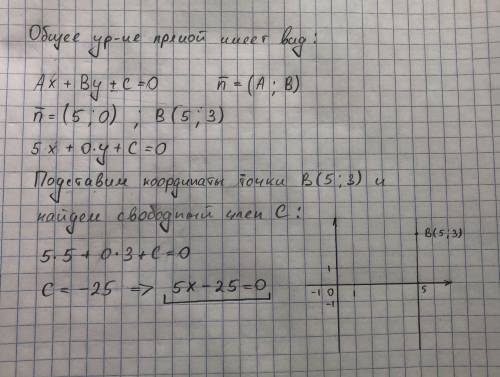 Общее ур-ие прямой имеет вид:
Ax + By + C = 0     n̄ = (A ; B)
n̄ = (5 ; 0) ; B(5 ; 3)
5x + 0·y + C = 0
Подставим координаты точки B(5 ; 3) и
найдем свободный член C:
5·5 + 0·3 + C = 0
C = -25 => 5x - 25 = 0
B(5;3)
1
-1 0 1 5
-1